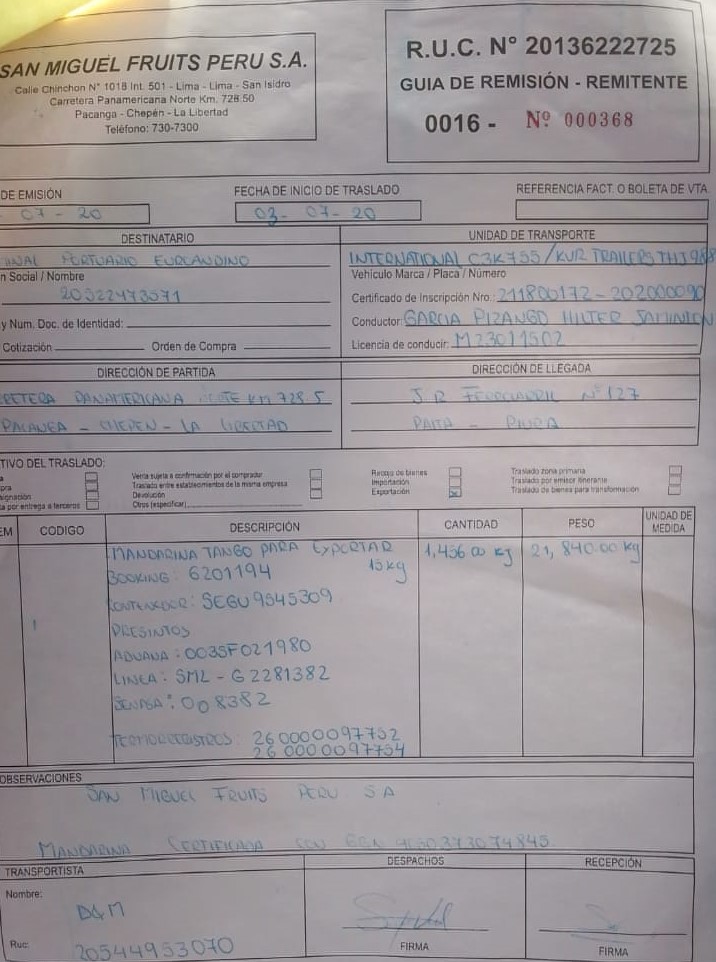 SAN MIGUEL FRUITS PERU S.A.
Calle Chinchon N° 1018 Int. 501 - Lima - Lima - San Isidro
Carretera Panamericana Norte Km. 728.50
Pacanga - Chepén - La Libertad
Teléfono: 730-7300
R.U.C. N° 20136222725
GUIA DE REMISIÓN - REMITENTE
0016 - Nº 000368
DE EMISIÓN
07 - 20
FECHA DE INICIO DE TRASLADO
03 - 07 - 20
REFERENCIA FACT. O BOLETA DE VTA.
DESTINATARIO
PORTUARIO EUROANDINO
n Social / Nombre
20522473571
y Num. Doc. de Identidad:
Cotización Orden de Compra
UNIDAD DE TRANSPORTE
INTERNATIONAL C3K755/KUR TRAILERS
Vehículo Marca / Placa / Número
Certificado de Inscripción Nro.: 211800172 - 202000090
Conductor: GARCIA PIZANGO
Licencia de conducir: M23011502
DIRECCIÓN DE PARTIDA
RETERA PANAMERICANA KM 728.5
PACANGA - CHEPEN - LA LIBERTAD
DIRECCIÓN DE LLEGADA
JR FERROCARRIL N°127
PAITA - PIURA
TIVO DEL TRASLADO:
a
pra
signación
ta por entrega a terceros
Venta sujeta a confirmación por el comprador
Traslado entre establecimientos de la misma empresa
Devolución
Otros (especificar)
Recojo de bienes
Importación
Exportación
Traslado zona primaria
Traslado por emisor itinerante
Traslado de bienes para transformación
EM CODIGO DESCRIPCIÓN CANTIDAD PESO UNIDAD DE MEDIDA
MANDARINA TANGO PARA EXPORTAR 1,456.00 kg 21,840.00 kg
15kg
BOOKING: 6201194
CONTENEDOR: SEGU9545309
PRESINTOS
ADUANA: 003SF021980
LINEA: SML - G2281382
SENASA: 008382
TERMOREGISTROS: 260000097752
260000097754
OBSERVACIONES
SAN MIGUEL FRUITS PERU S A
MANDARINA CERTIFICADA CON
TRANSPORTISTA
Nombre:
D&M
Ruc: 20544953070
DESPACHOS
FIRMA
RECEPCIÓN
FIRMA